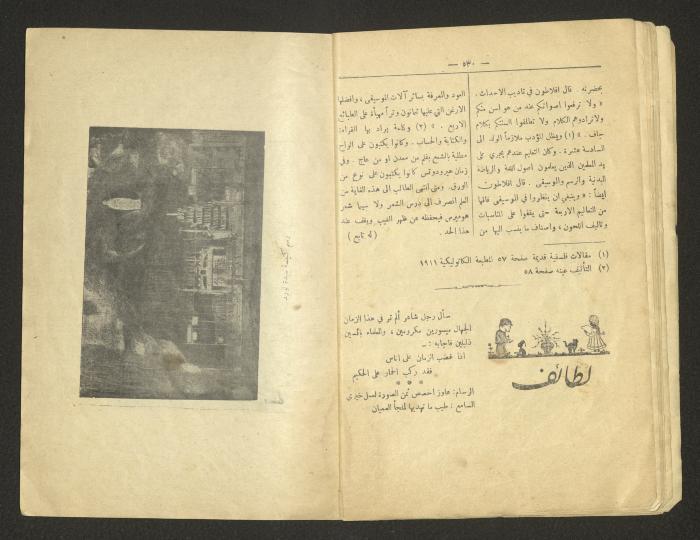 — ٥٣٠ —
بحضرته . قال افلاطون في تاديب الاحداث .
« ولا ترفعوا اصواتكم عنده من هو اسن منكم
ولا ترادوهم الكلام ولا تطلقوا السنتكم بكلام
جاف . » (١) ويظل المؤدب ملازماً الولد الى
السادسة عشرة . وكان التعليم عندهم يجري على
يد المعلمين الذين يعلمون اصول اللغة والرياضة
البدنية والرسم والموسيقى . قال افلاطون
ايضاً : « وينبغي ان ينظروا في الموسيقى فانها
من التعاليم الاربعة حتى يقفوا على المناسبات
وتاليف اللحون ، واصناف ما ينسب اليها من
العود والمعرفة بسائر آلات الموسيقى ، وافضلها
الارغن التي عليها ثمانون وتراً مهيأة على الطبائع
الاربع . » (٢) وكتابة يراد بها القراءة
والكتابة والحساب . وكانوا يكتبون على الواح
مطلية بالشمع بقلم من معدن او من عاج . وفي
زمان هيرودوتس كانوا يكتبون على نوع من
الورق . ومتى انتهى الطالب الى هذه الغاية من
العلم انصرف الى درس الشعر ولا سيما شعر
هوميرس فيحفظه عن ظهر القلب ويقف عند
هذا الحد . ( له تابع )
(١) مقالات فلسفية قديمة صفحة ٥٧ المطبعة الكاثوليكية ١٩١١
(٢) التأليف عينه صفحة ٥٨
لطائف
سأل رجل شاعر ألم تر في هذا الزمان
الجهال ميسورين مكرومين ، والعلماء بائسين
ذليلين فاجابه : ـ
اذا غضب الزمان على اناس
فقد ركب الحمار على الحكيم
* * *
الرسام : عاوز اخصص ثمن الصورة لعمل خيري
السامع : طيب ما تهديها لملجأ العميان
رسم كنيسة سيدة لورد